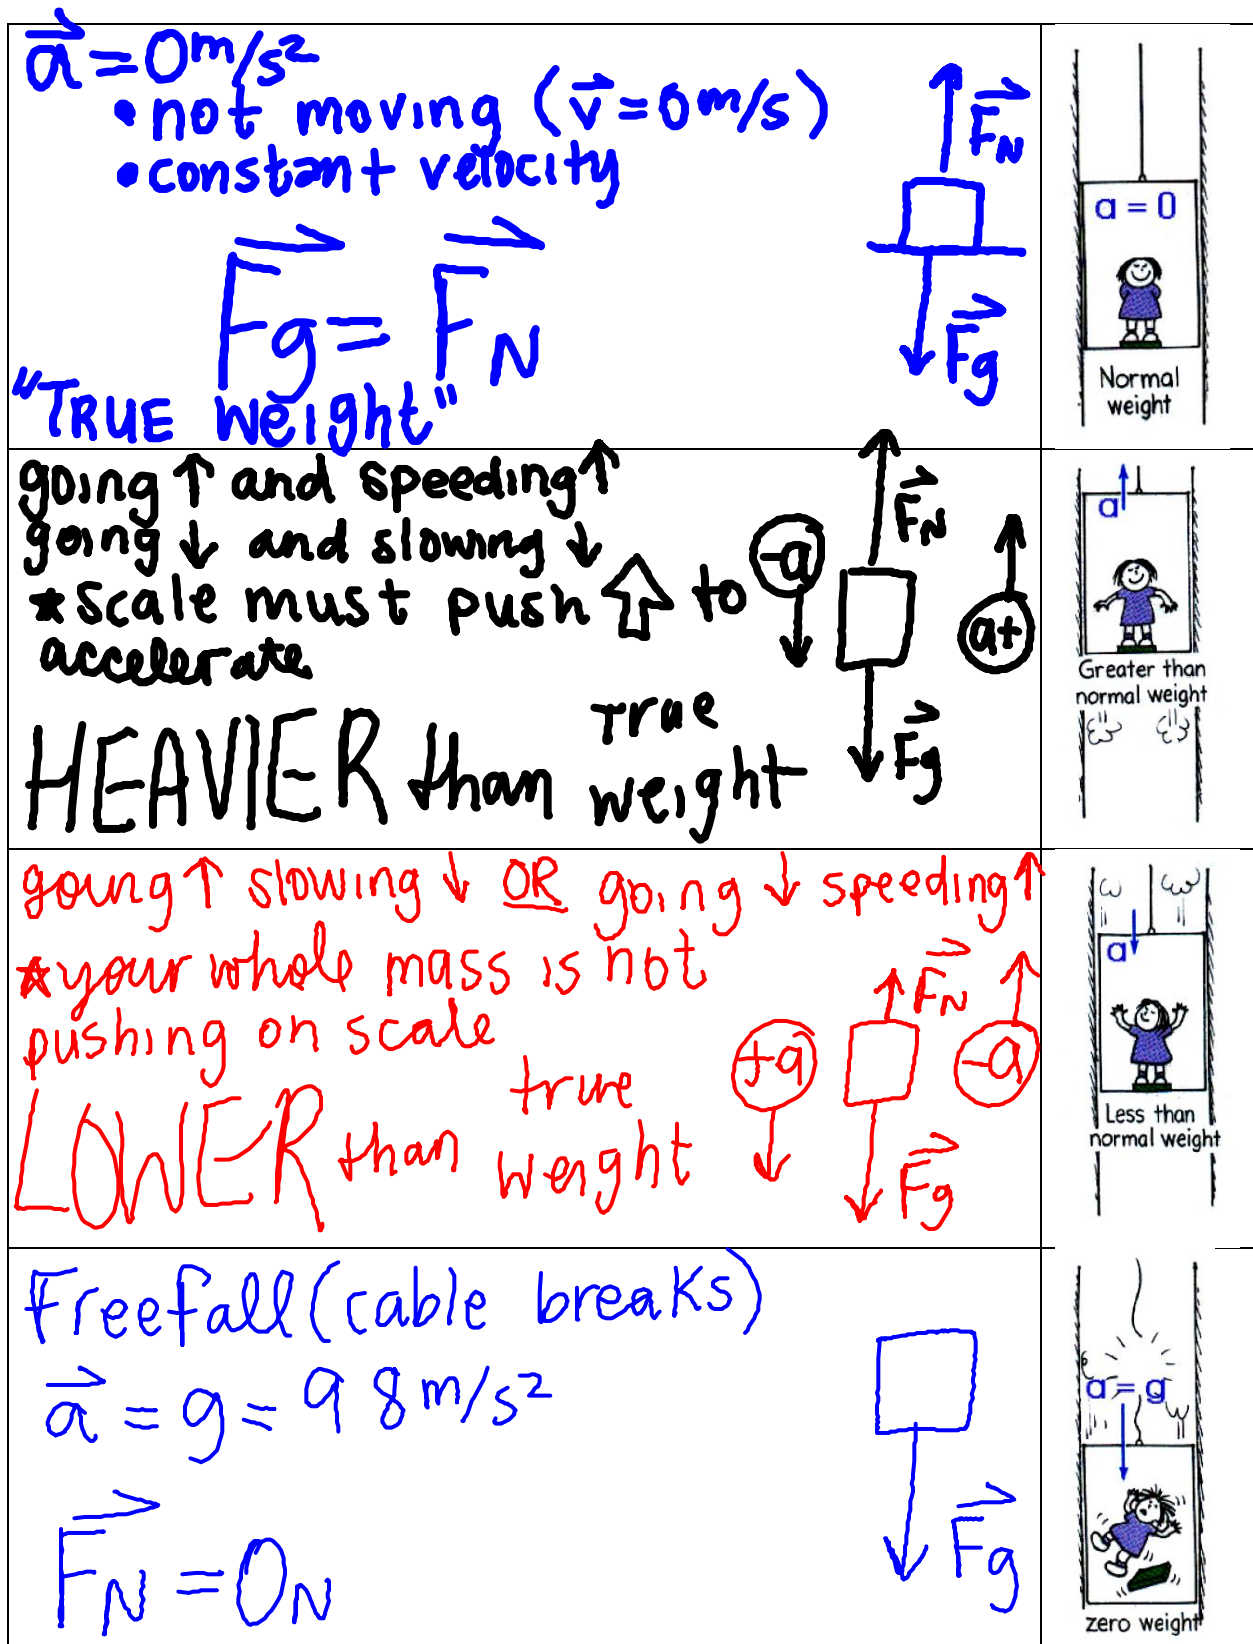 a = 0 m/s²
• not moving (v = 0 m/s)
• constant velocity
Fg = FN
"TRUE weight"
FN
Fg
a = 0
Normal
weight
going ↑ and speeding ↑
going ↓ and slowing ↓
*scale must push ⇧ to
accelerate
HEAVIER than true
weight
-a
FN
a+
Fg
a
Greater than
normal weight
going ↑ slowing ↓ OR going ↓ speeding ↑
*your whole mass is not
pushing on scale
LOWER than true
weight
+a
FN
-a
Fg
a
Less than
normal weight
Freefall (cable breaks)
a = g = 9 8 m/s²
FN = 0N
Fg
a = g
zero weight